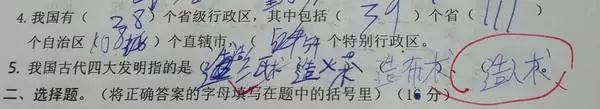 4.我国有( 38 )个省级行政区,其中包括( 39 )个省( 111 )
个自治区( )个直辖市, 个特别行政区。
5.我国古代四大发明指的是 造 术 造火术 造布术 造人术
二、选择题。(将正确答案的字母填写在题中的括号里)(16分)